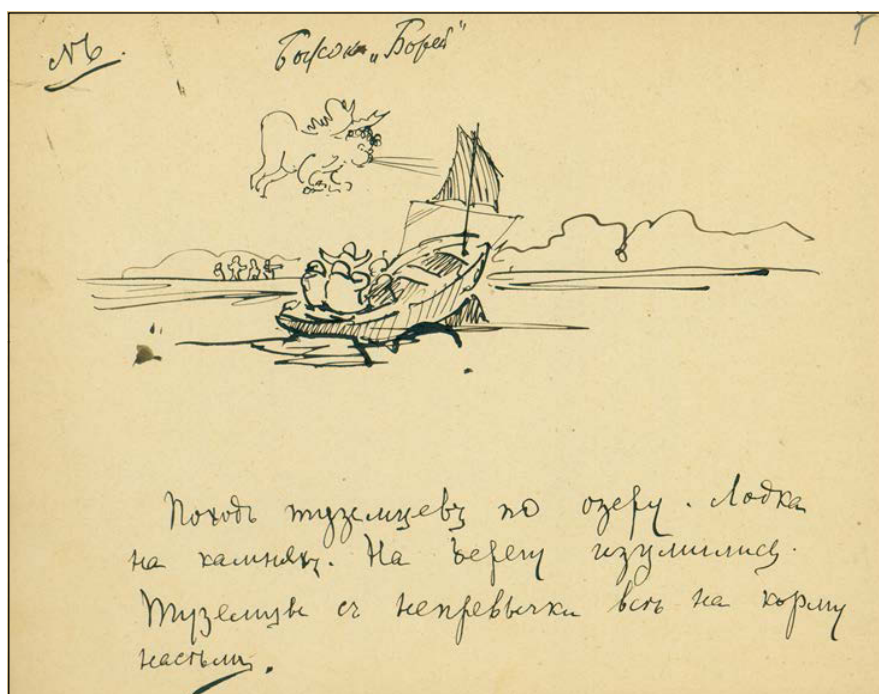 № 6.
„Борей“
Походъ туземцевъ по озеру. Лодка
на камняхъ. На берегу изумились.
Туземцы съ непревычки всѣ на корму
насѣли.